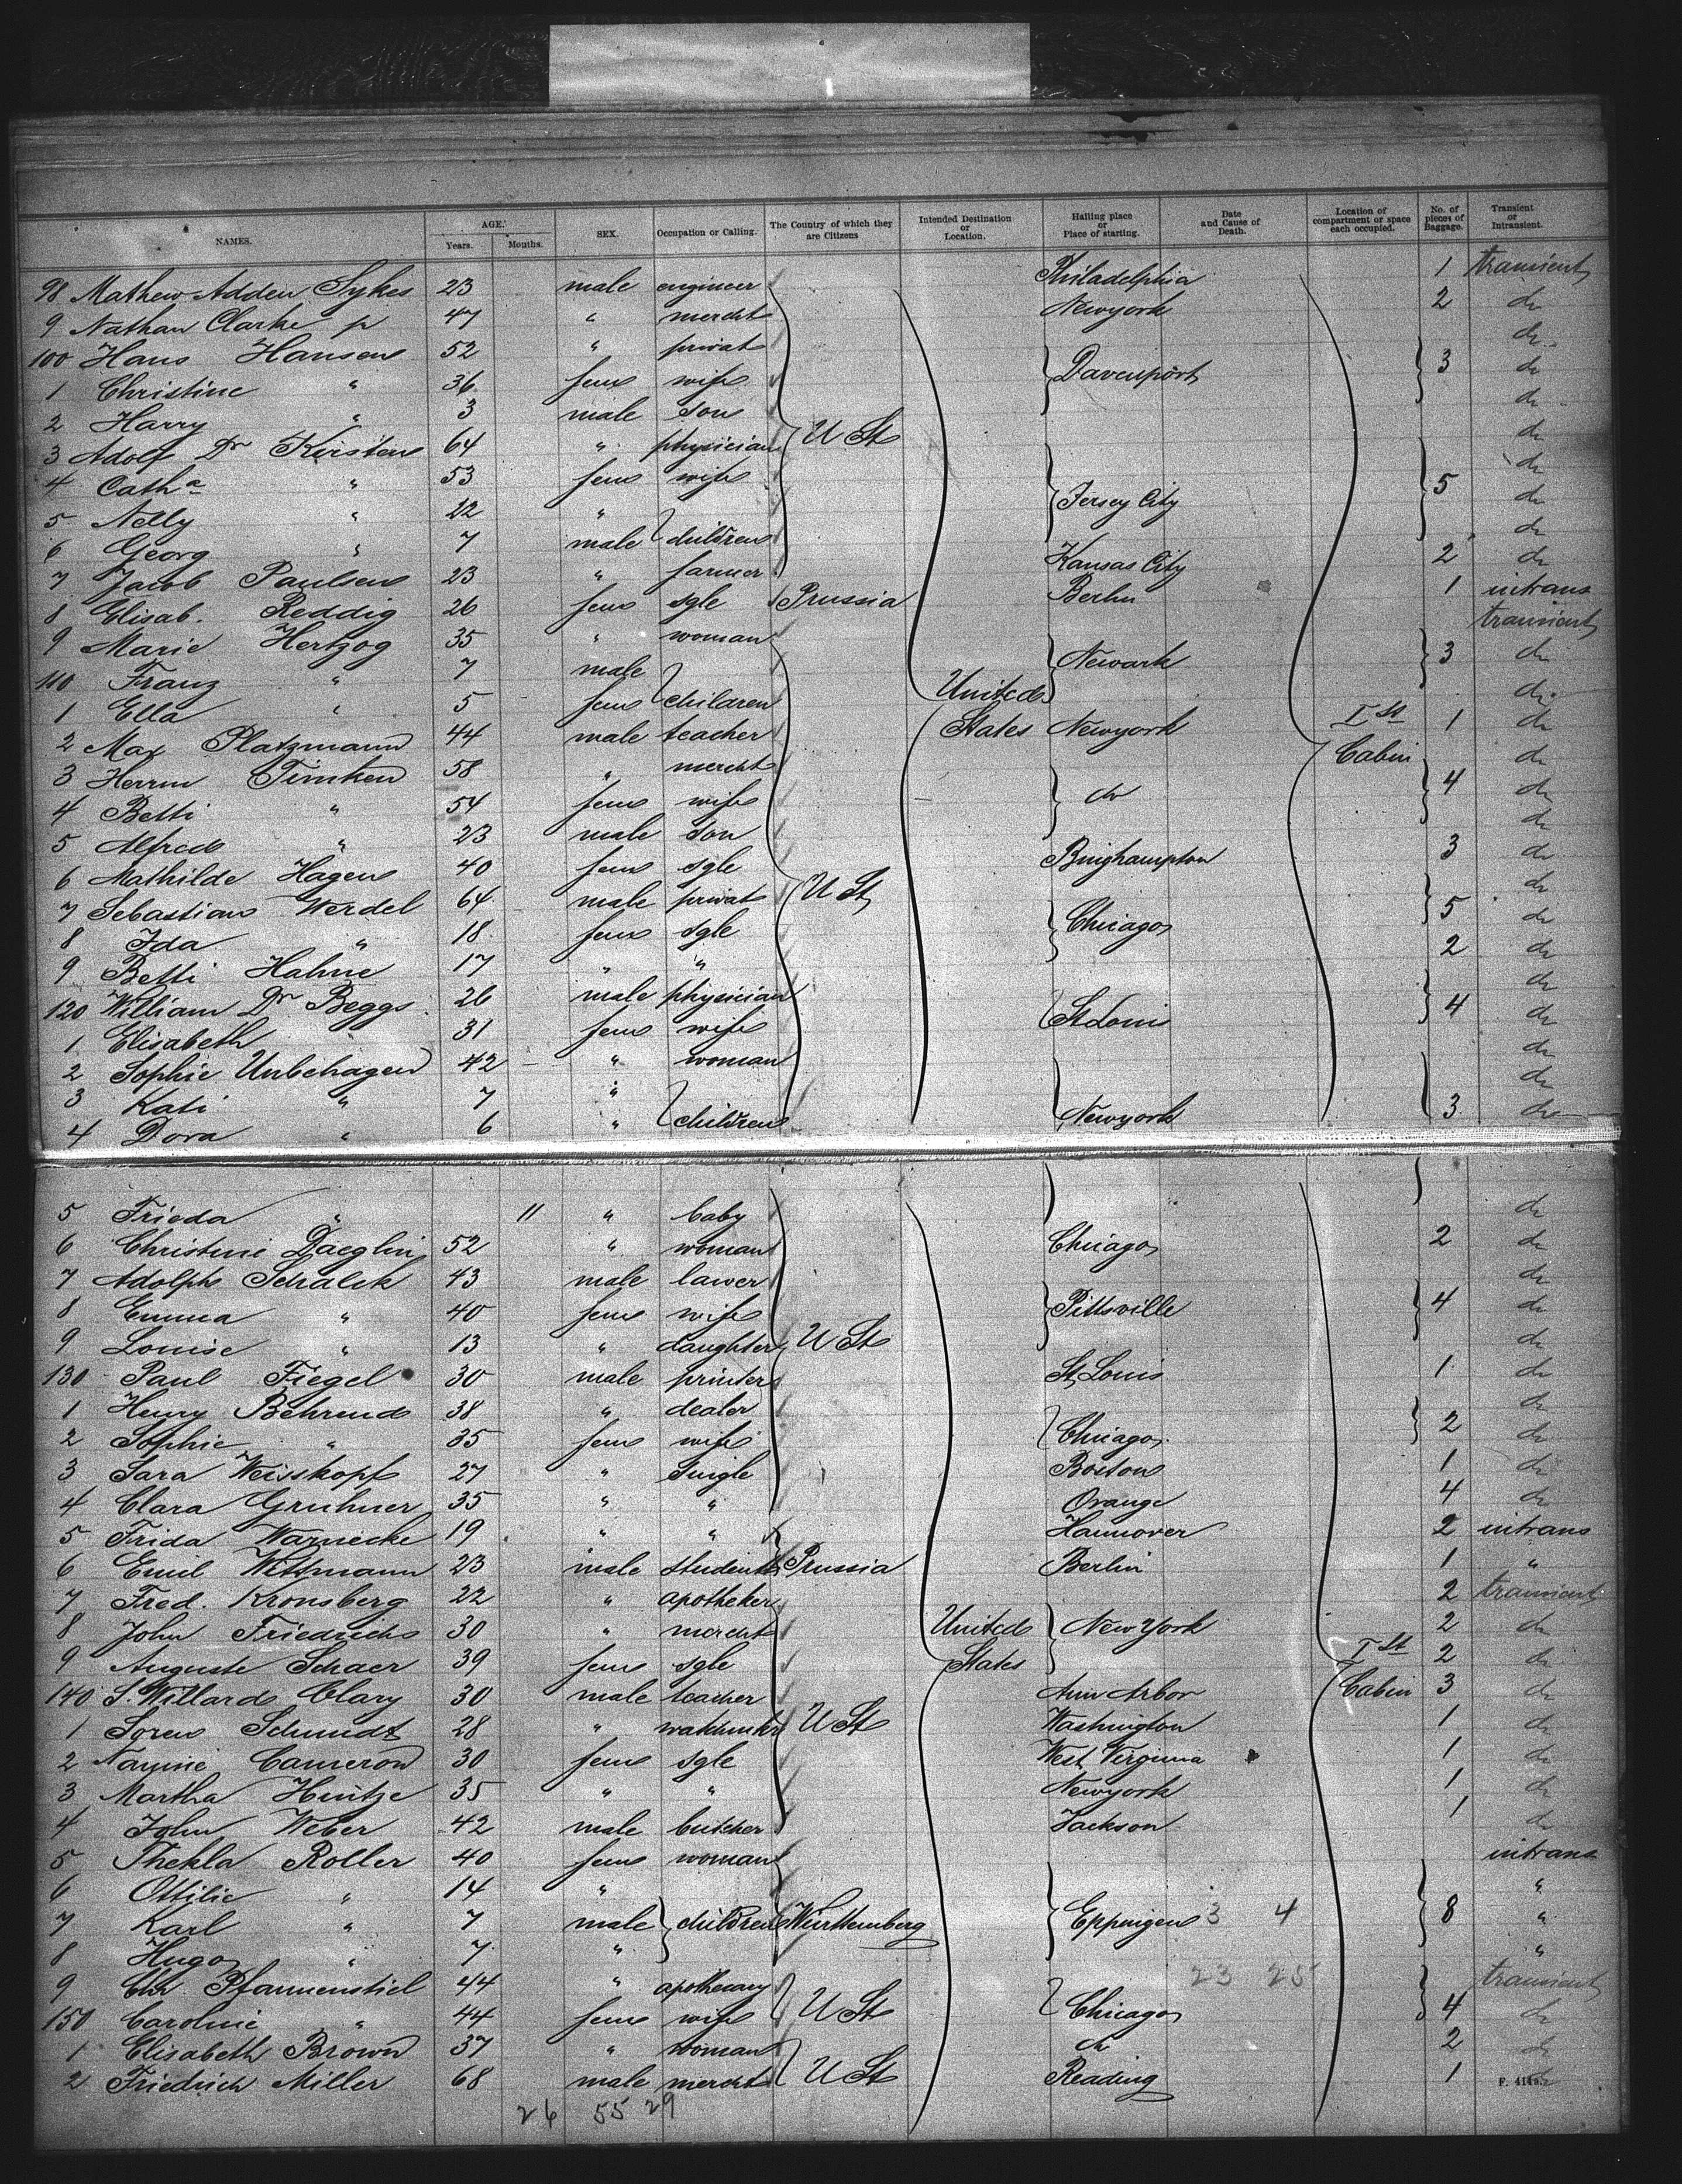 NAMES. AGE. Years. Months. SEX. Occupation or Calling. The Country of which they are Citizens Intended Destination or Location. Hailing place or Place of starting. Date and Cause of Death. Location of compartment or space each occupied. No. of pieces of Baggage. Transient or Intransient.
98 Mathew Adden Sykes 23 male engineer Philadelphia 1 transient
9 Nathan Clarke jr 47 " mercht Newyork 2 do
100 Hans Hansen 52 " privat do
1 Christine " 36 fem wife Davenport 3 do
2 Harry " 3 male son do
3 Adolf Dr Kirsten 64 " physician U St do
4 Catha " 53 fem wife do
5 Nelly " 22 " Jersey City 5 do
6 Georg " 7 male children do
7 Jacob Paulsen 23 " farmer Kansas City 2 do
8 Elisab. Reddig 26 fem sgle Prussia Berlin 1 intrans
9 Marie Hertzog 35 " woman transient
110 Franz " 7 male Newark 3 do
1 Ella " 5 fem children United do
2 Max Platzmann 44 male teacher States Newyork Ist 1 do
3 Herrm Timken 58 " mercht Cabin do
4 Betti " 54 fem wife do 4 do
5 Alfred " 23 male son do
6 Mathilde Hagen 40 fem sgle Binghampton 3 do
7 Sebastian Werdel 64 male privat U St do
8 Ida " 18 fem sgle Chicago 5 do
9 Betti Hahne 17 " " 2 do
120 William Dr Beggs 26 male physician do
1 Elisabeth 31 fem wife St Louis 4 do
2 Sophie Unbehagen 42 " woman do
3 Kati " 7 " do
4 Dora " 6 " children Newyork 3 do
5 Frieda " 11 " baby do
6 Christine Daeglin 52 " woman Chicago 2 do
7 Adolph Schalck 43 male lawer do
8 Emma " 40 fem wife Pittsville 4 do
9 Louise " 13 " daughter U St do
130 Paul Fiegel 30 male printer St Louis 1 do
1 Henry Behrend 38 " dealer do
2 Sophie " 35 fem wife Chicago 2 do
3 Sara Weisskopf 27 " Single Boston 1 do
4 Clara Gruhner 35 " " Orange 4 do
5 Frida Warnecke 19 " " Hannover 2 intrans
6 Emil Wittmann 23 male student Prussia Berlin 1 "
7 Fred. Kronsberg 22 " apotheker 2 transient
8 John Friedrichs 30 " mercht United New York 2 do
9 Auguste Schaer 39 fem sgle States Ist 2 do
140 S. Willard Clary 30 male teacher Ann Arbor Cabin 3 do
1 Soren Schmidt 28 " U St Washington 1 do
2 Nannie Cameron 30 fem sgle West Virginia 1 do
3 Martha Hintze 35 " " Newyork 1 do
4 John Weber 42 male butcher Jackson 1 do
5 Thekla Roller 40 fem woman intrans
6 Ottilie " 14 " "
7 Karl " 7 male children Württemberg Eppingen 3 4 8 "
8 Hugo " 7 " "
9 Chr. Pfannenstiel 44 " apothecary 23 25 transient
150 Caroline " 44 fem wife U St Chicago 4 do
1 Elisabeth Brown 37 " woman do 2 do
2 Friedrich Miller 68 male mercht U St Reading 1 do
26 55 29